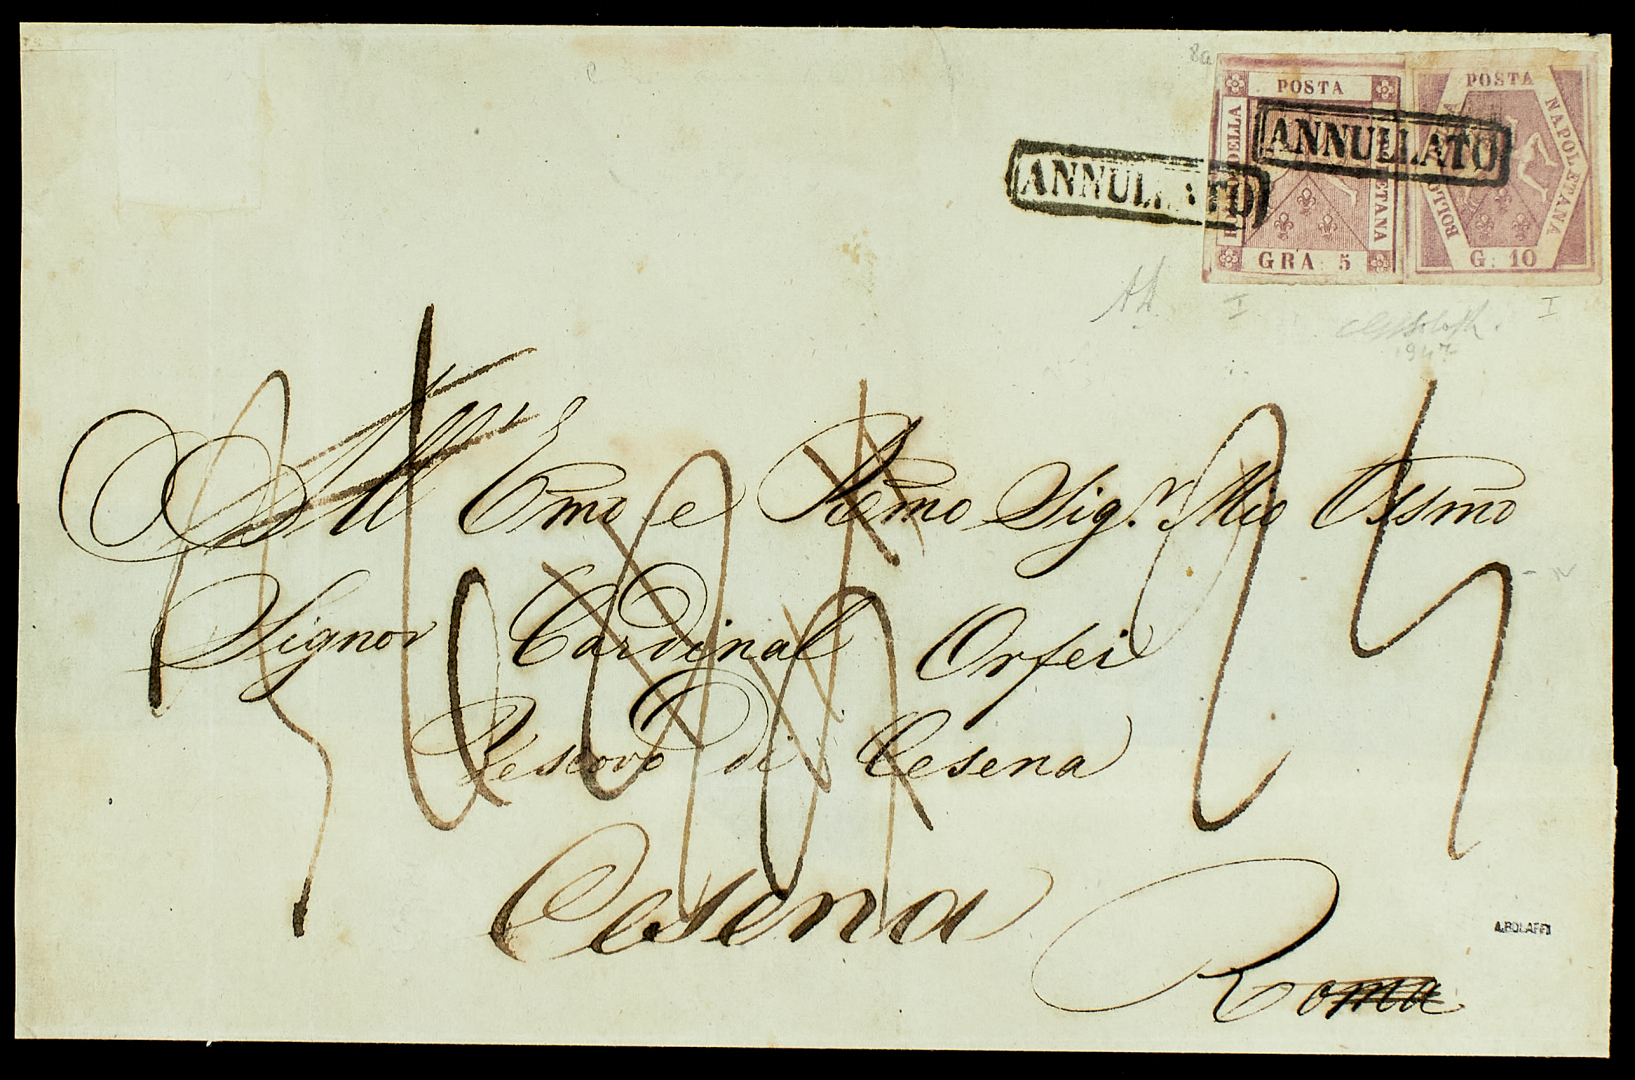 8a
POSTA
BOLLO DELLA
NAPOLETANA
GRA. 5
POSTA
NAPOLETANA
BOLLO DELLA
G. 10
ANNULLATO
ANNULLATO
I
I
1947
All' Emo e Rèmo Sig.r Mio Ossmo
Signor Cardinal Orfei
Vescovo di Cesena
Cesena
Roma
A.BOLAFFI